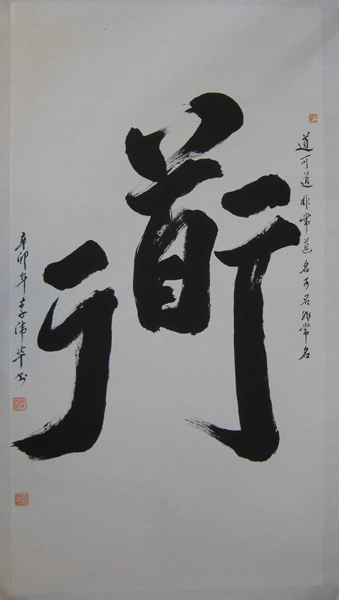 道可道非常道名可名非常名
衜
辛卯年李華书